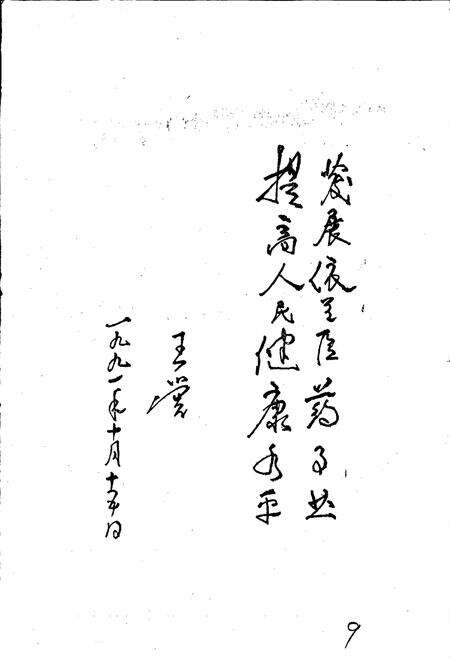 發展依兰医药事业
提高人民健康水平
王
一九九一年十月十五日
9